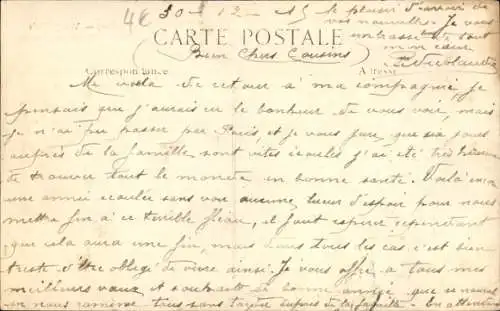 4€ 30 - 12 - 15 le plaisir d'avoir de
vos nouvelles. Je vous
embrasse de tout
mon cœur
CARTE POSTALE
Bien Chers Cousins
Correspondance Adresse
Me voila de retour à ma compagnie je
pensais que j'aurais eu le bonheur de vous voir, mais
je n'ai pu passer par Paris et je vous jure que six jours
auprès de la famille sont vites écoulés j'ai été très heureux
de trouver tout le monde en bonne santé. Voilà encore
une année écoulée sans voir aucune lueur d'espoir pour nous
mettre fin à ce terrible fléau, il faut espérer cependant
que cela aura une fin, mais dans tous les cas c'est bien
triste d'être obligé de vivre ainsi. Je vous offre à tous mes
meilleurs vœux et souhaits de bonne année que ce nouvel
an nous ramène tous sans tarder auprès de la famille. En attendant